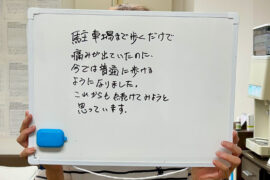 駐車場まで歩くだけで
痛みが出ていたのに、
今では普通に歩ける
ようになりました。
これからも続けてみようと
思っています。